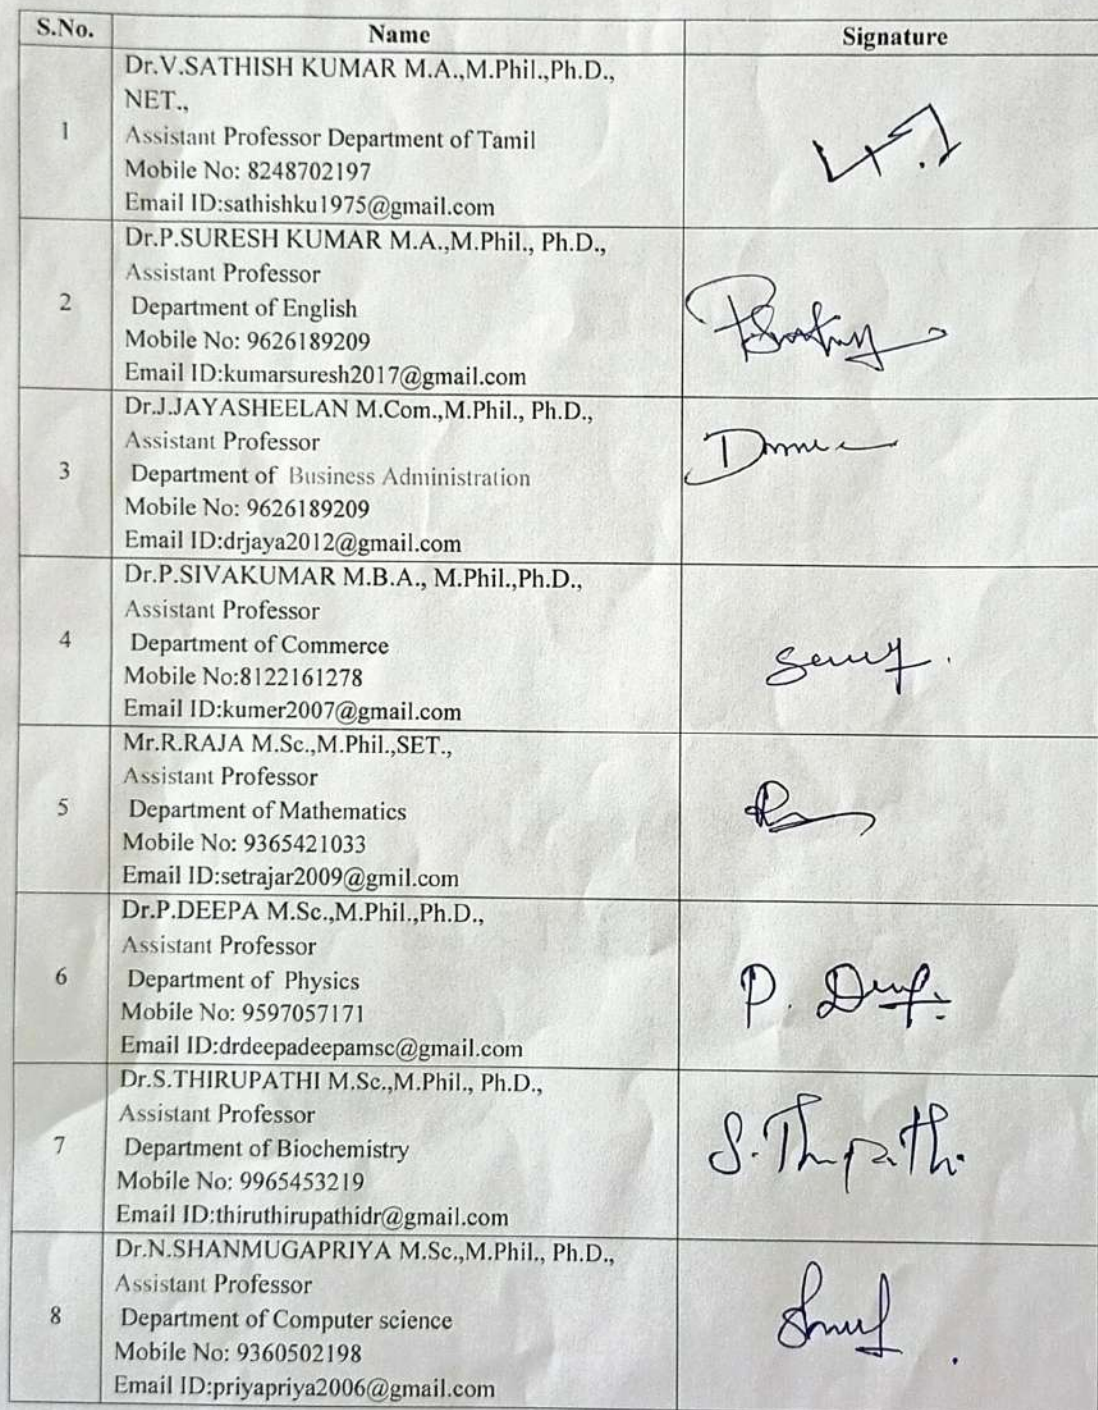 S.No. Name Signature
Dr.V.SATHISH KUMAR M.A.,M.Phil.,Ph.D.,
NET.,
1 Assistant Professor Department of Tamil
Mobile No: 8248702197
Email ID:sathishku1975@gmail.com
Dr.P.SURESH KUMAR M.A.,M.Phil., Ph.D.,
Assistant Professor
2 Department of English
Mobile No: 9626189209
Email ID:kumarsuresh2017@gmail.com
Dr.J.JAYASHEELAN M.Com.,M.Phil., Ph.D.,
Assistant Professor
3 Department of Business Administration
Mobile No: 9626189209
Email ID:drjaya2012@gmail.com
Dr.P.SIVAKUMAR M.B.A., M.Phil.,Ph.D.,
Assistant Professor
4 Department of Commerce
Mobile No:8122161278
Email ID:kumer2007@gmail.com
Mr.R.RAJA M.Sc.,M.Phil.,SET.,
Assistant Professor
5 Department of Mathematics
Mobile No: 9365421033
Email ID:setrajar2009@gmil.com
Dr.P.DEEPA M.Sc.,M.Phil.,Ph.D.,
Assistant Professor
6 Department of Physics
Mobile No: 9597057171
Email ID:drdeepadeepamsc@gmail.com
Dr.S.THIRUPATHI M.Sc.,M.Phil., Ph.D.,
Assistant Professor
7 Department of Biochemistry
Mobile No: 9965453219
Email ID:thiruthirupathidr@gmail.com
Dr.N.SHANMUGAPRIYA M.Sc.,M.Phil., Ph.D.,
Assistant Professor
8 Department of Computer science
Mobile No: 9360502198
Email ID:priyapriya2006@gmail.com